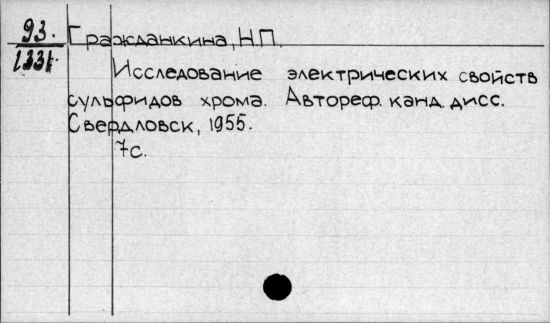 93.
Гражданкина, Н.П.
1331
Исследование электрических свойств
сульфидов хрома. Автореф. канд. дисс.
Свердловск, 1955.
7с.